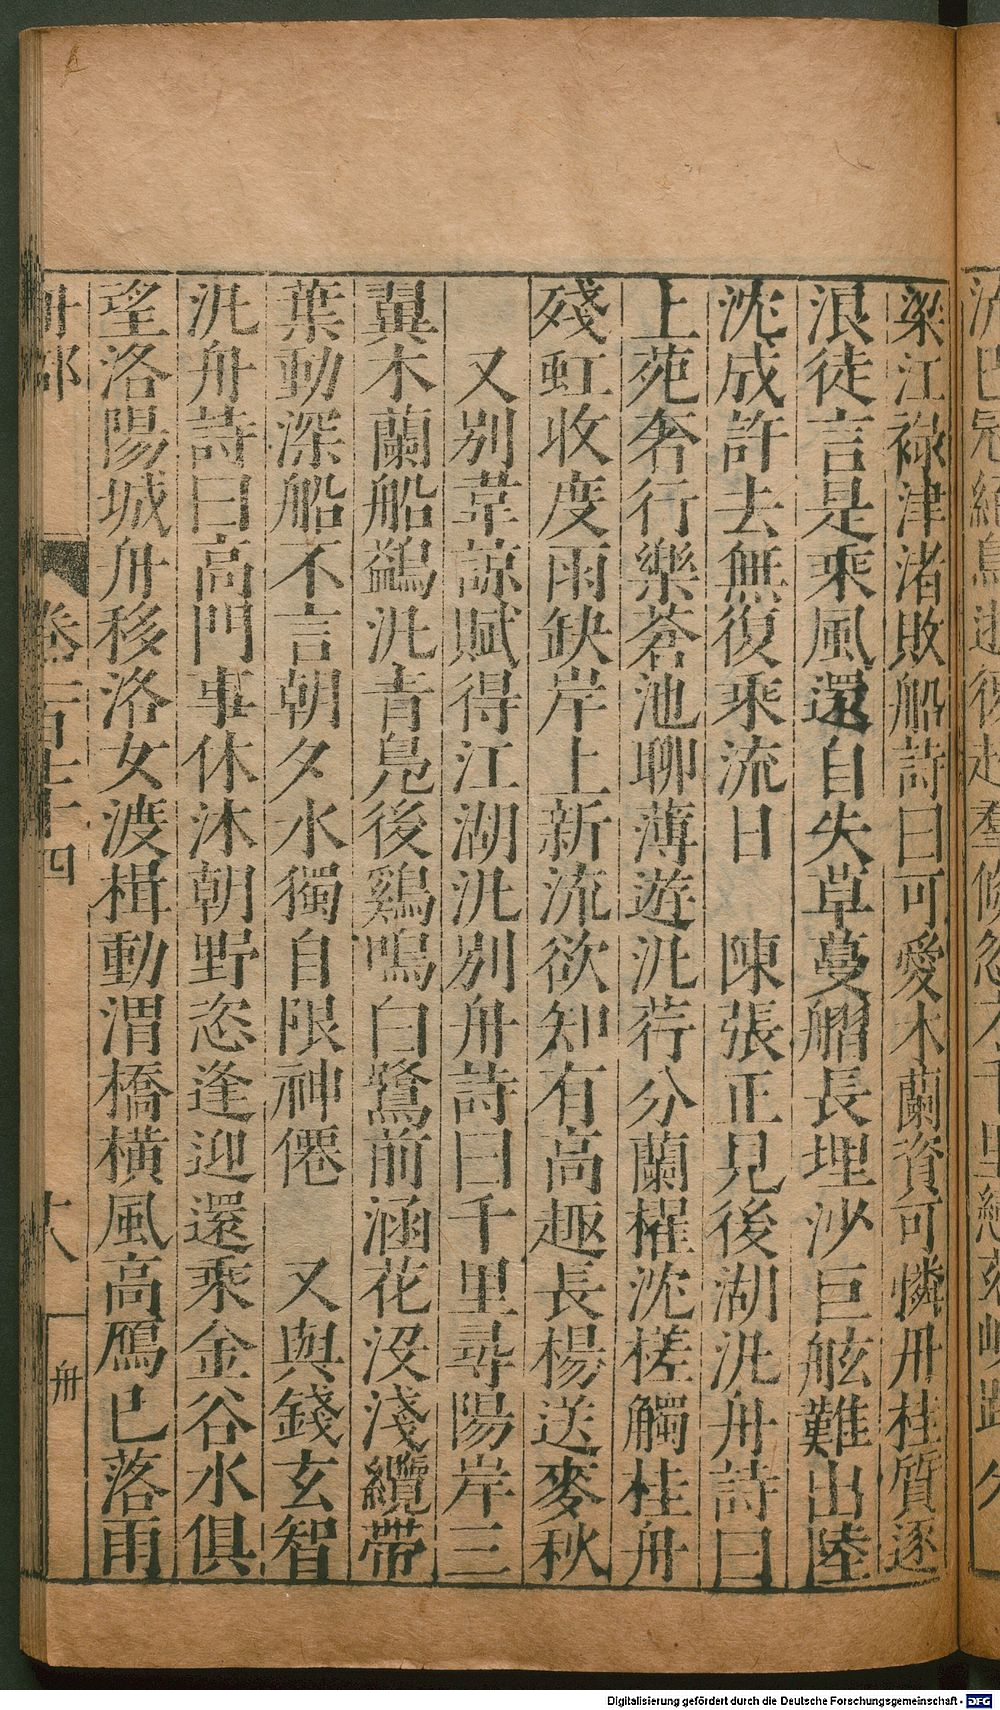 梁江祿津渚敗船詩曰可愛木蘭資可憐舟桂質逐
浪徒言是乘風還自失草蔓䑽長埋沙巨舷難出陸
沈成許去無復乘流日　陳張正見後湖汎舟詩曰
上苑奢行樂蒼池聊薄遊汎荇分蘭櫂沈槎觸桂舟
殘虹收度雨缺岸上新流欲知有高趣長楊送麥秋
又別韋諒賦得江湖汎別舟詩曰千里尋陽岸三
翼木蘭船鷁汎青鳧後鷄鳴白鷺前涵花沒淺纜帶
葉動深船不言朝夕水獨自限神僊　又與錢玄智
汎舟詩曰高門事休沐朝野恣逢迎還乘金谷水俱
望洛陽城舟移洛女渡楫動渭橋橫風高鴈已落雨
舟部
卷一百廿四
十八
舟
Digitalisierung gefördert durch die Deutsche Forschungsgemeinschaft - DFG